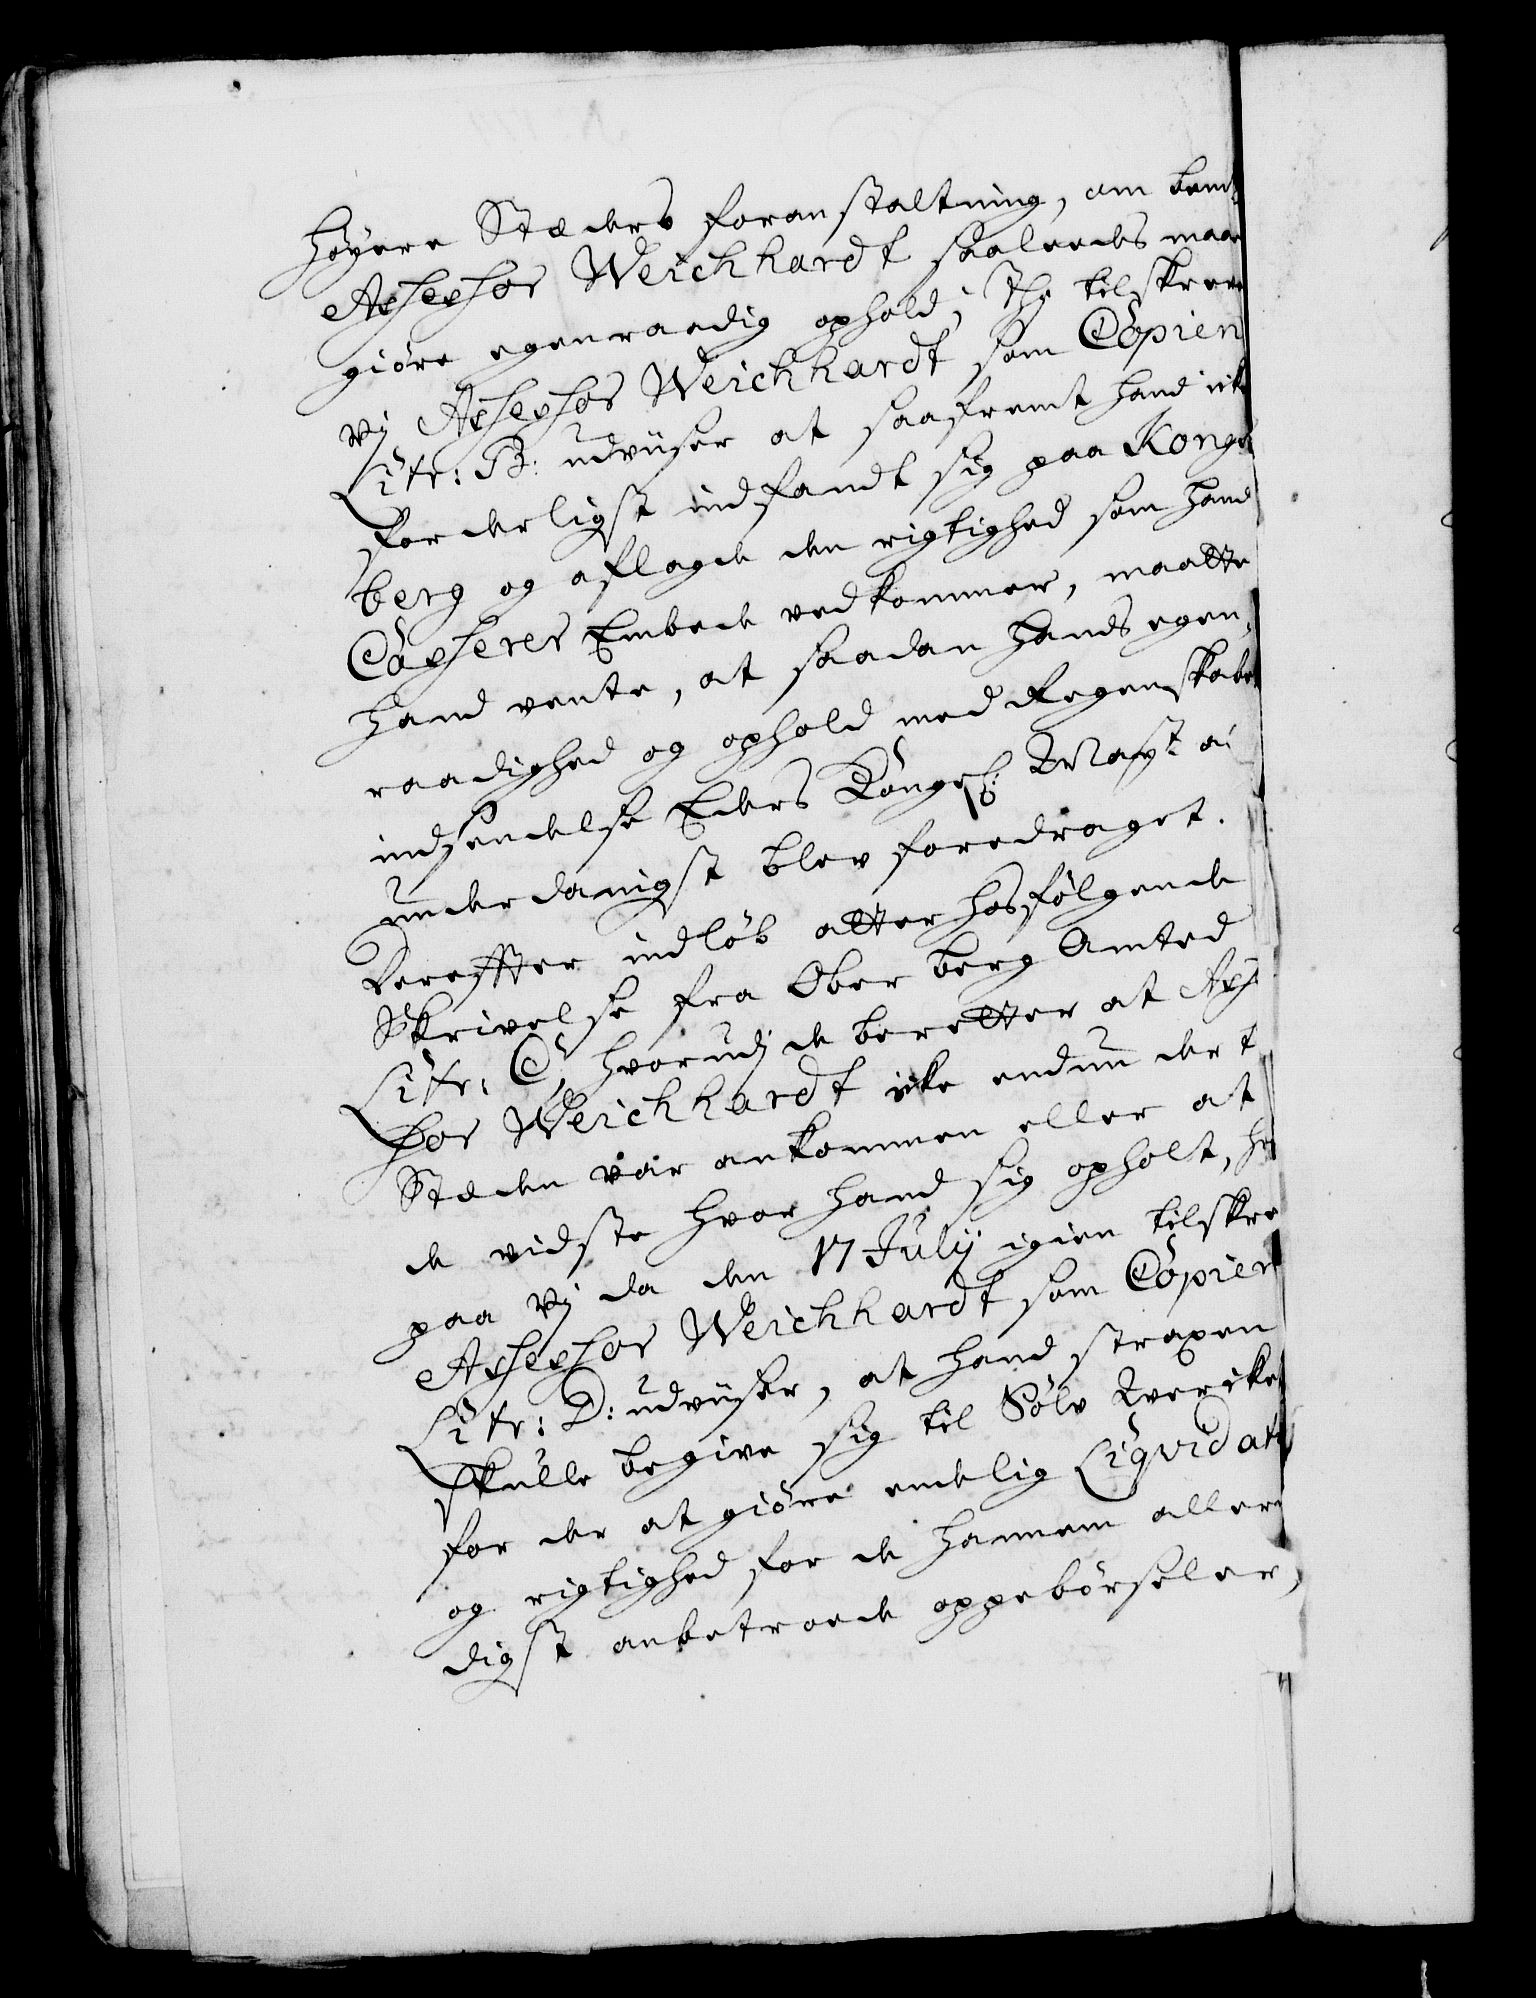 høyere Stæders foranstaltning, om bemt
Assessor Weichhardt saaleedes maa
giöre egenraadig ophold; Thj tilskrev
vj Assessor Weichhardt som Copien
Litr: B: udviiser at saafremt hand ike
forderligst indfandt sig paa Kongs
berg og aflagde den rigtighed som hand
Casserer Embede vedkommer, maatte
hand vente, at saadan hands egen,
raadighed og ophold med Regenskabet
indsendelse Eders Kongel: Mayt a
underdanigst blev foredraget.
Dereffter indlöb atter hosfølgende
Skrivelse fra Ober berg Amted
Litr: C, hvorudj de beretter at Asse
sor Weichhardt icke endnu der t
Stæden var ankommen eller at
de vidste hvor hand sig opholt, hv
paa vj da den 17 Julij igien tilskre
Assessor Weichhardt som Copien
Litr: D: udviiser, at hand straxen
skulle begive sig til Sölv Verket
for der at giöre endelig Liqvidati
og rigtighed for de hannem aller
digst anbetroede oppebörseler,